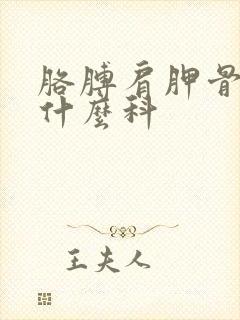 胳膊肩胛骨
什麼科
王夫人